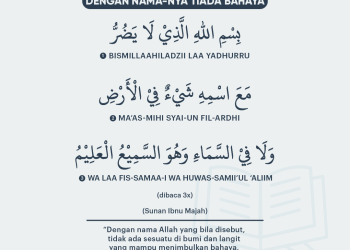 DENGAN NAMA-NYA TIADA BAHAYA
بِسْمِ اللهِ الَّذِيْ لَا يَضُرُّ
1 BISMILLAAHILADZII LAA YADHURRU
مَعَ اسْمِهِ شَيْءٌ فِيْ الْأَرْضِ
2 MA'AS-MIHI SYAI-UN FIL-ARDHI
وَلَا فِيْ السَّمَاءِ وَهُوَ السَّمِيْعُ الْعَلِيْمُ
3 WA LAA FIS-SAMAA-I WA HUWAS-SAMII'UL 'ALIIM
(dibaca 3x)
(Sunan Ibnu Majah)
"Dengan nama Allah yang bila disebut,
tidak ada sesuatu di bumi dan langit
yang mampu menimbulkan bahaya,